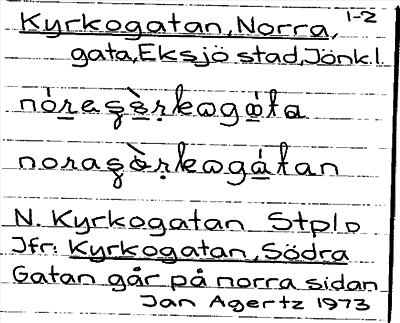 1-2
Kyrkogatan, Norra,
gata, Eksjö stad, Jönk.l.
N. Kyrkogatan Stpl D
Jfr: Kyrkogatan, Södra
Gatan går på norra sidan
Jan Agertz 1973